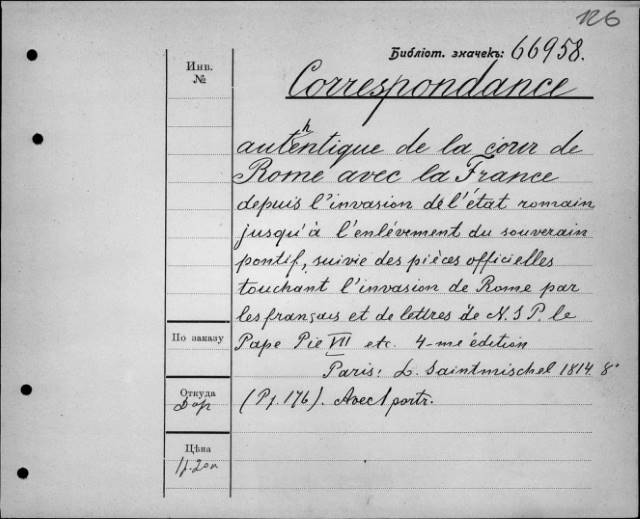 126
Библіот. значекъ: 66958.
Инв. №
Correspondance
authentique de la cour de
Rome avec la France
depuis l'invasion de l'état romain
jusqu'à l'enlévement du souverain
pontif, suivie des pièces officielles
touchant l'invasion de Rome par
les français et de lettres de N. S P. le
По заказу
Pape Pie VII etc. 4-me édition
Paris: L. Saintmischel 1814 8°
Откуда
Дар
(Pf. 176). Avec 1 portr.
Цѣна